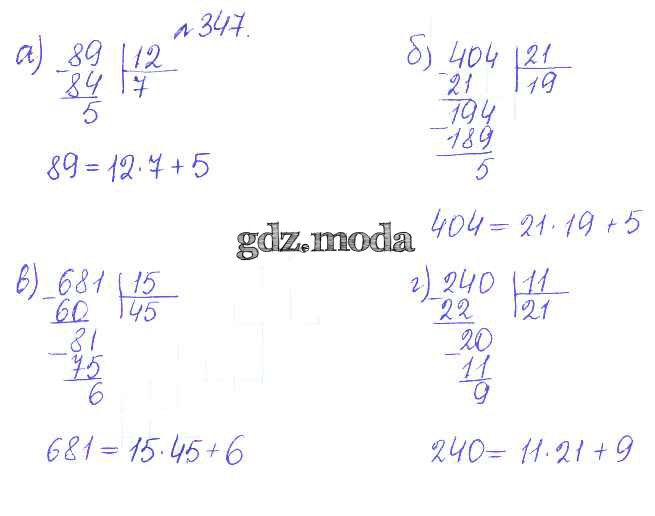 № 347.
а) 89 | 12
84 | 7
5
89 = 12·7 + 5
б) 404 | 21
21 | 19
194
189
5
404 = 21·19 + 5
gdz.moda
в) 681 | 15
60 | 45
81
75
6
681 = 15·45 + 6
г) 240 | 11
22 | 21
20
11
9
240 = 11·21 + 9